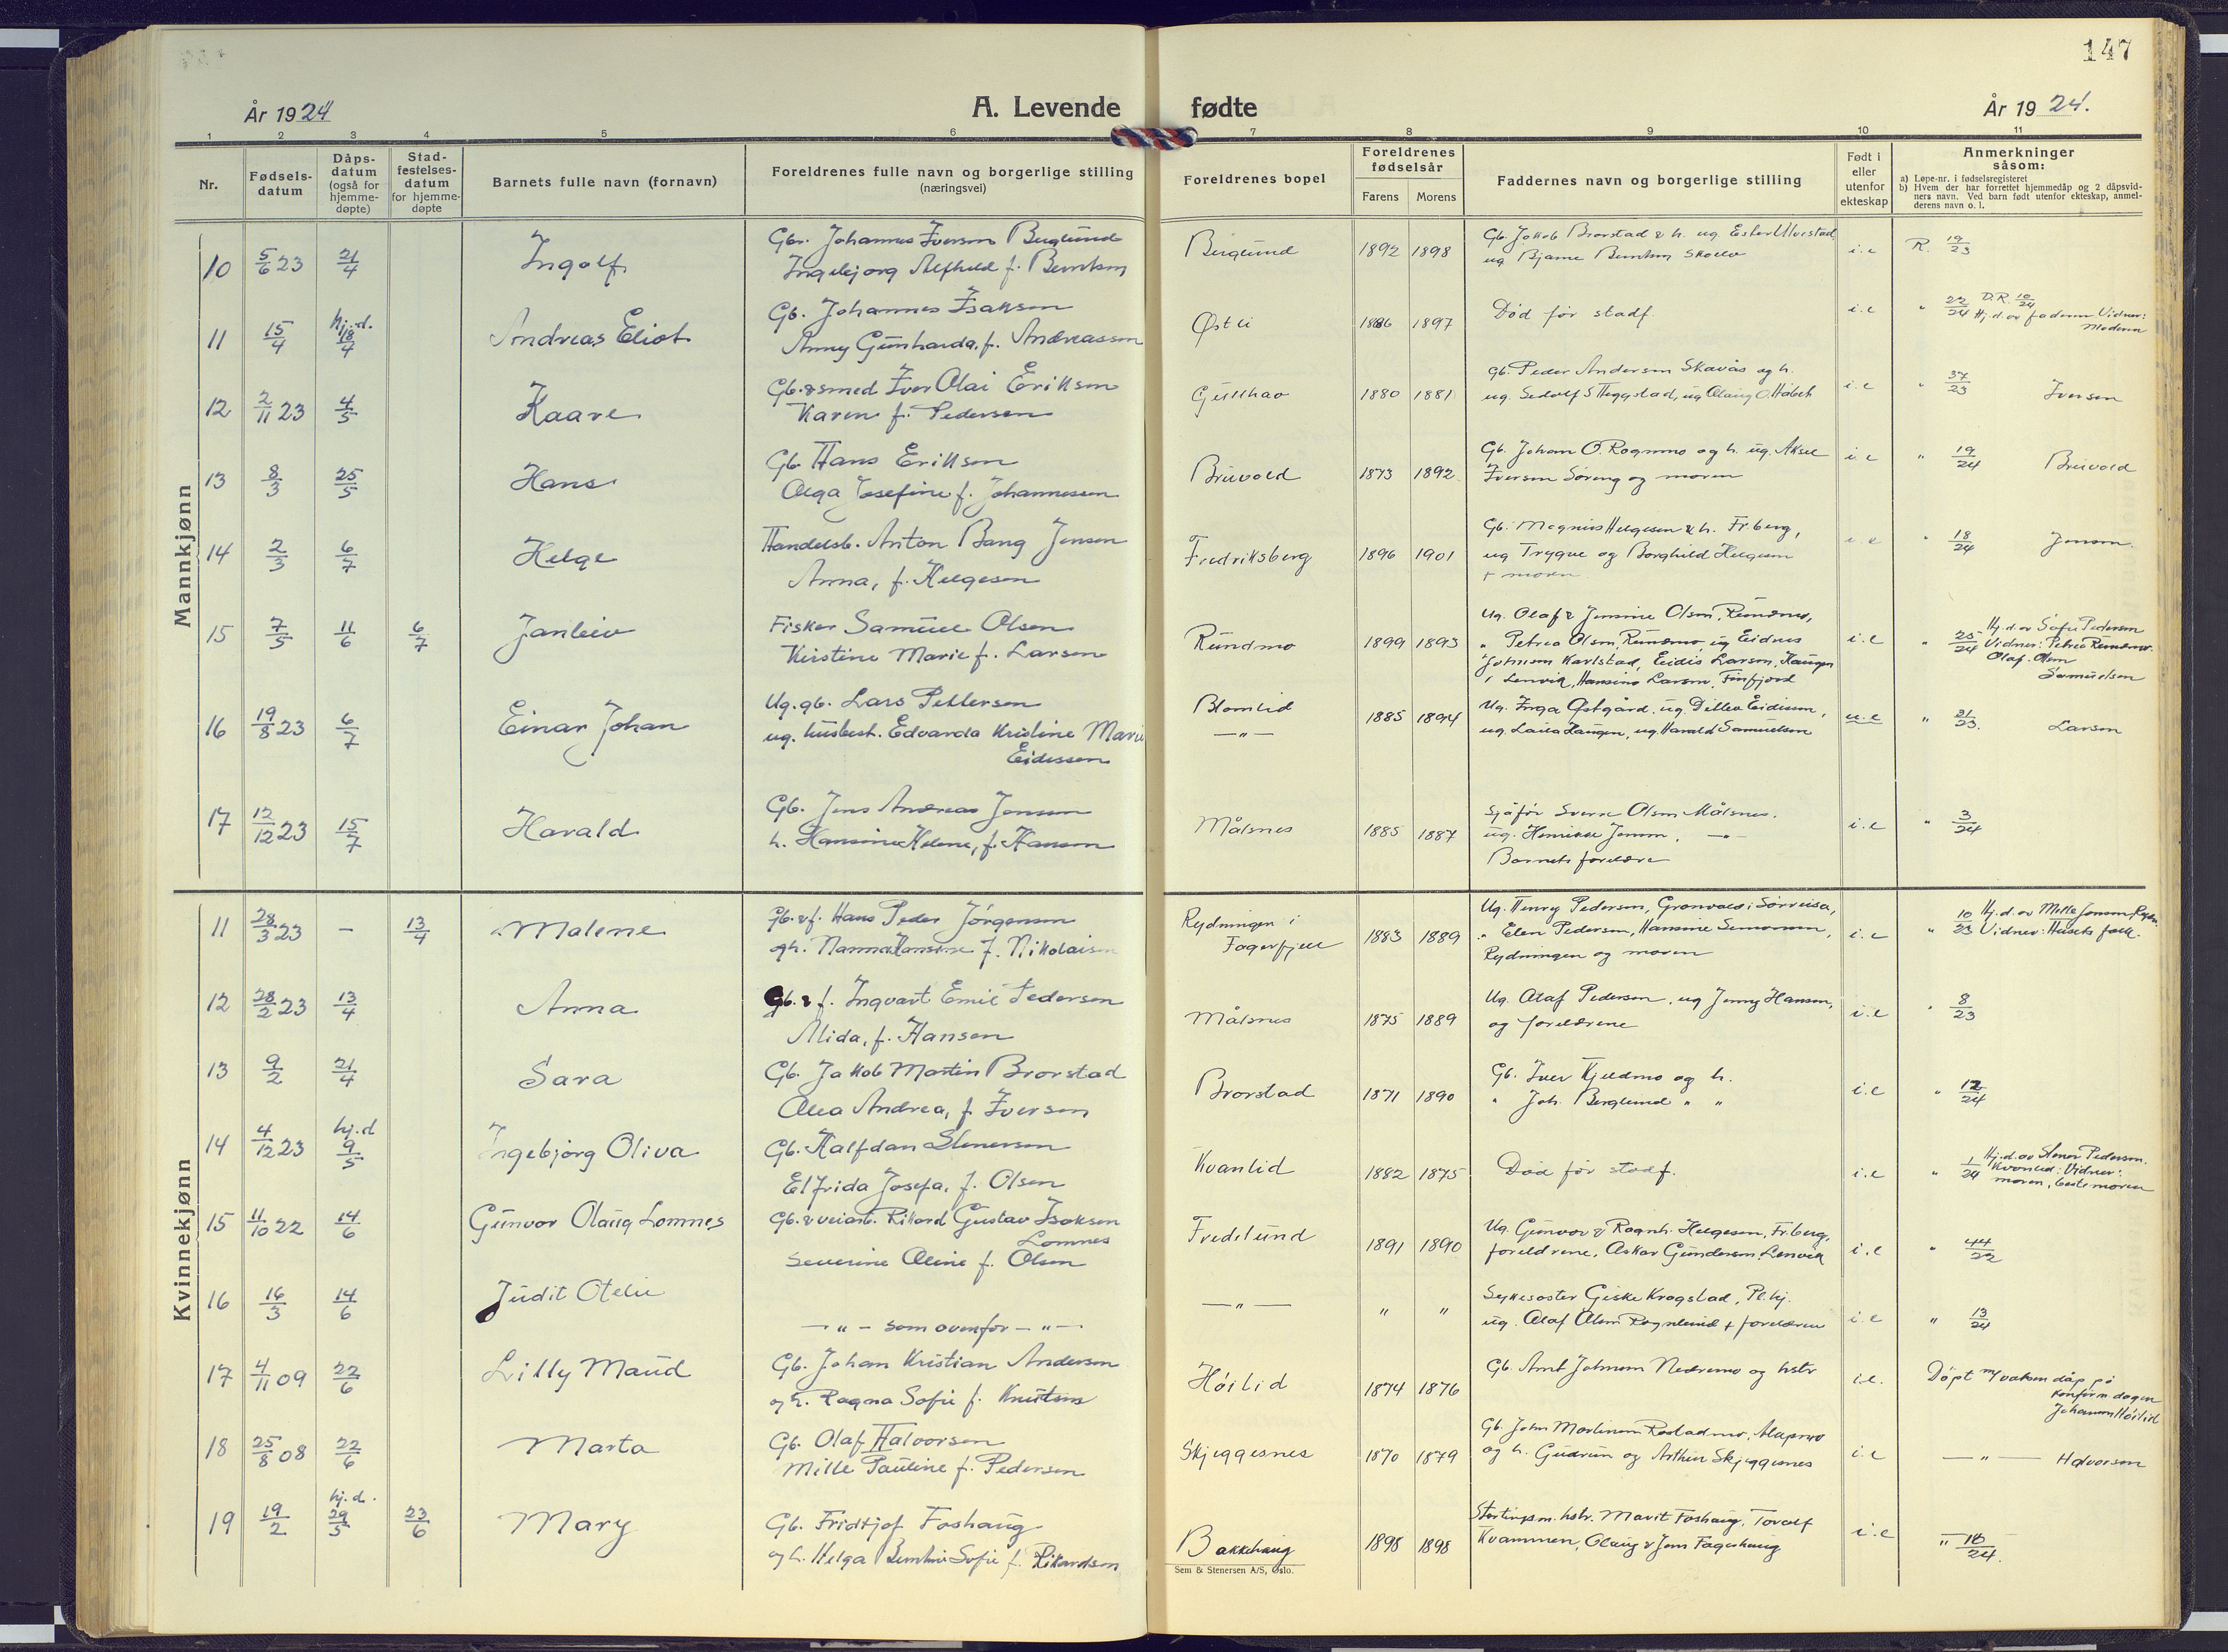 147
År 1924
A. Levende fødte
År 1924.
1 2 3 4 5 6 7 8 9 10 11
Nr.
Fødsels-datum
Dåps-datum (også for hjemme-døpte)
Stad-festelses-datum for hjemme-døpte
Barnets fulle navn (fornavn)
Foreldrenes fulle navn og borgerlige stilling (næringsvei)
Foreldrenes bopel
Foreldrenes fødselsår
Farens Morens
Faddernes navn og borgerlige stilling
Født i eller utenfor ekteskap
Anmerkninger såsom:
a) Løpe-nr. i fødselsregisteret
b) Hvem der har forrettet hjemmedåp og 2 dåpsvid-
ners navn. Ved barn født utenfor ekteskap, anmel-
derens navn o. l.
Mannkjønn
10 5/6 23 21/4 Ingolf
Gbr. Johannes Iversen Berglund
Ingebjorg Alfhild f. Berntsen
Berglund 1892 1898
Gb. Jakob Brorstad & h. ug. Ester Ulvestad
ug. Bjarne Berntsen Skoelv
i.e R. 19/23
11 15/4 hj.d. 18/4 Andreas Eliot
Gb. Johannes Isaksen
Anny Gunharda, f. Andreassen
Østli 1886 1897
Død før stadf.
i.e " 22/24 D.R. 10/24
Hj.d. av faderen Vidner:
Moderen
12 2/11 23 4/5 Kaare
Gb. & smed Iver Olai Eriksen
Karen f. Pedersen
Gullhav 1880 1881
gb. Peder Andersen Skavås og h.
ug. Sedolf S Heggstad, ug Olaug O.
i.e " 37/23 Iversen
13 8/3 25/5 Hans
Gb Hans Eriksen
Olga Josefine f. Johannessen
Breivold 1873 1892
Gb. Johan O. Rognmo og h. ug. Aksel
Iversen Søreng og moren
i.e " 19/24 Breivold
14 2/3 6/7 Helge
Handelsb. Anton Bang Jensen
Anna, f. Helgesen
Fredriksberg 1896 1901
Gb. Magnus Helgesen & h. Fr.berg,
ug Trygve og Borghild Helgesen
+ moren
i.e " 18/24 Jensen.
15 7/5 11/6 6/7 Janleiv
Fisker Samuel Olsen
Kirstine Marie f. Larsen
Rundmo 1899 1893
Ug. Olaf & Jensine Olsen, Rundmo,
" Petrea Olsen, Rundmo, ug Eidnes
Johnsen Karlstad, Eidis Larsen, Haugen
i Lenvik, Hansine Larsen, Finfjord
i.e " 25/24 Hj.d. av Sofie Pedersen
Vidner: Petrea Rundmo.
Olaf Olsen
Samuelsen
16 19/8 23 6/7 Einar Johan
Ug. gb. Lars Pettersen
ug. husbest. Edvarda Kristine Marie
Eidissen
Blomlid 1885 1894
— " —
Ug. Inga Østgård, ug. Ditlev Eidissen,
ug. Laila Haugen, ug. Harald Samuelsen
u.e " 21/23. Larsen
17 12/12 23 15/7 Harald
Gb. Jens Andreas Jensen
h. Hansine Helene, f. Hansen
Målsnes 1885 1887
Sjåfør Sverre Olsen Målsnes.
ug. Henrikke Jensen, — " —
Barnets foreldre
i.e " 3/24
Kvinnekjønn
11 28/3 23 – 13/4 Malene
Gb. & f. Hans Peder Jørgensen
og h. Nanna Hansine f. Nikolaisen
Rydningen i
Fagerfjell 1883 1889
Ug. Henry Pedersen, Grønvold i Sørreisa,
" Elen Pedersen, Hansine Simonsen,
Rydningen og moren
i.e " 10/23 Hj.d. av Mille Jensen Rydn.
Vidner: Husets folk.
12 28/2 23 13/4 Anna
Gb. & f. Ingvart Emil Pedersen
Alida, f. Hansen
Målsnes 1875 1889
Ug. Olaf Pedersen, ug Jenny Hansen,
og foreldrene
i.e " 8/23
13 9/2 21/4 Sara
Gb. Jakob Martin Brorstad
Olea Andrea, f. Iversen
Brorstad 1871 1890
Gb. Iver Kjeldmo og h.
" Joh. Berglund " "
i.e " 12/24
14 4/12 23 hj.d 9/5 Ingebjørg Oliva
Gb. Halfdan Stenersen
Elfrida Josefa, f. Olsen
Kvanlid 1882 1875
Død før stadf.
i.e " 1/24 Hj.d. av Stener Pedersen.
Kvanlid: Vidner:
moren, bestemoren
15 11/10 22 14/6 Gunvor Olaug Lomnes
Gb. & veiarb. Rikard Gustav Isaksen
Lomnes
Severine Oline f. Olsen
Fredelund 1891 1890
Ug. Gunvor & Ragnh. Helgesen, Fr.berg,
foreldrene, Askar Gundersen, Lenvik
i.e " 44/22
16 16/3 14/6 Judit Otelie
— " – som ovenfor — " —
— " — " "
Sykesøster Giske Krogstad, Pl.hj.
ug. Olaf Olsen Rognlund + foreldrene
i.e " 13/24
17 4/11 09 22/6 Lilly Maud
Gb. Johan Kristian Andersen
og h. Ragna Sofie f. Knutsen
Høilid 1874 1876
Gb. Arnt Johnsen Nedremo og hstr
i.e. Döpt m/ voksen dåp på
konfirm.dagen
Johansen Høilid
18 25/8 08 22/6 Marta
Gb. Olaf Halvorsen
Mille Pauline f. Pedersen
Skjeggesnes 1870 1879
Gb. John Martinsen Rostadmo,
og h. Gudrun og Arthur Skjeggesnes
i.e — " — Halvorsen
19 19/2 hj.d. 29/5 23/6 Mary
Gb. Fridtjof Foshaug
og h. Helga Berntine Sofie f. Rikardsen
Bakkehaug 1898 1898
Stortingsm. hstr. Marit Foshaug, Torolf
Kvammen, Olaug & Jens Fagerhaug
i.e " 16/24.
Sem & Stenersen A/S, Oslo.